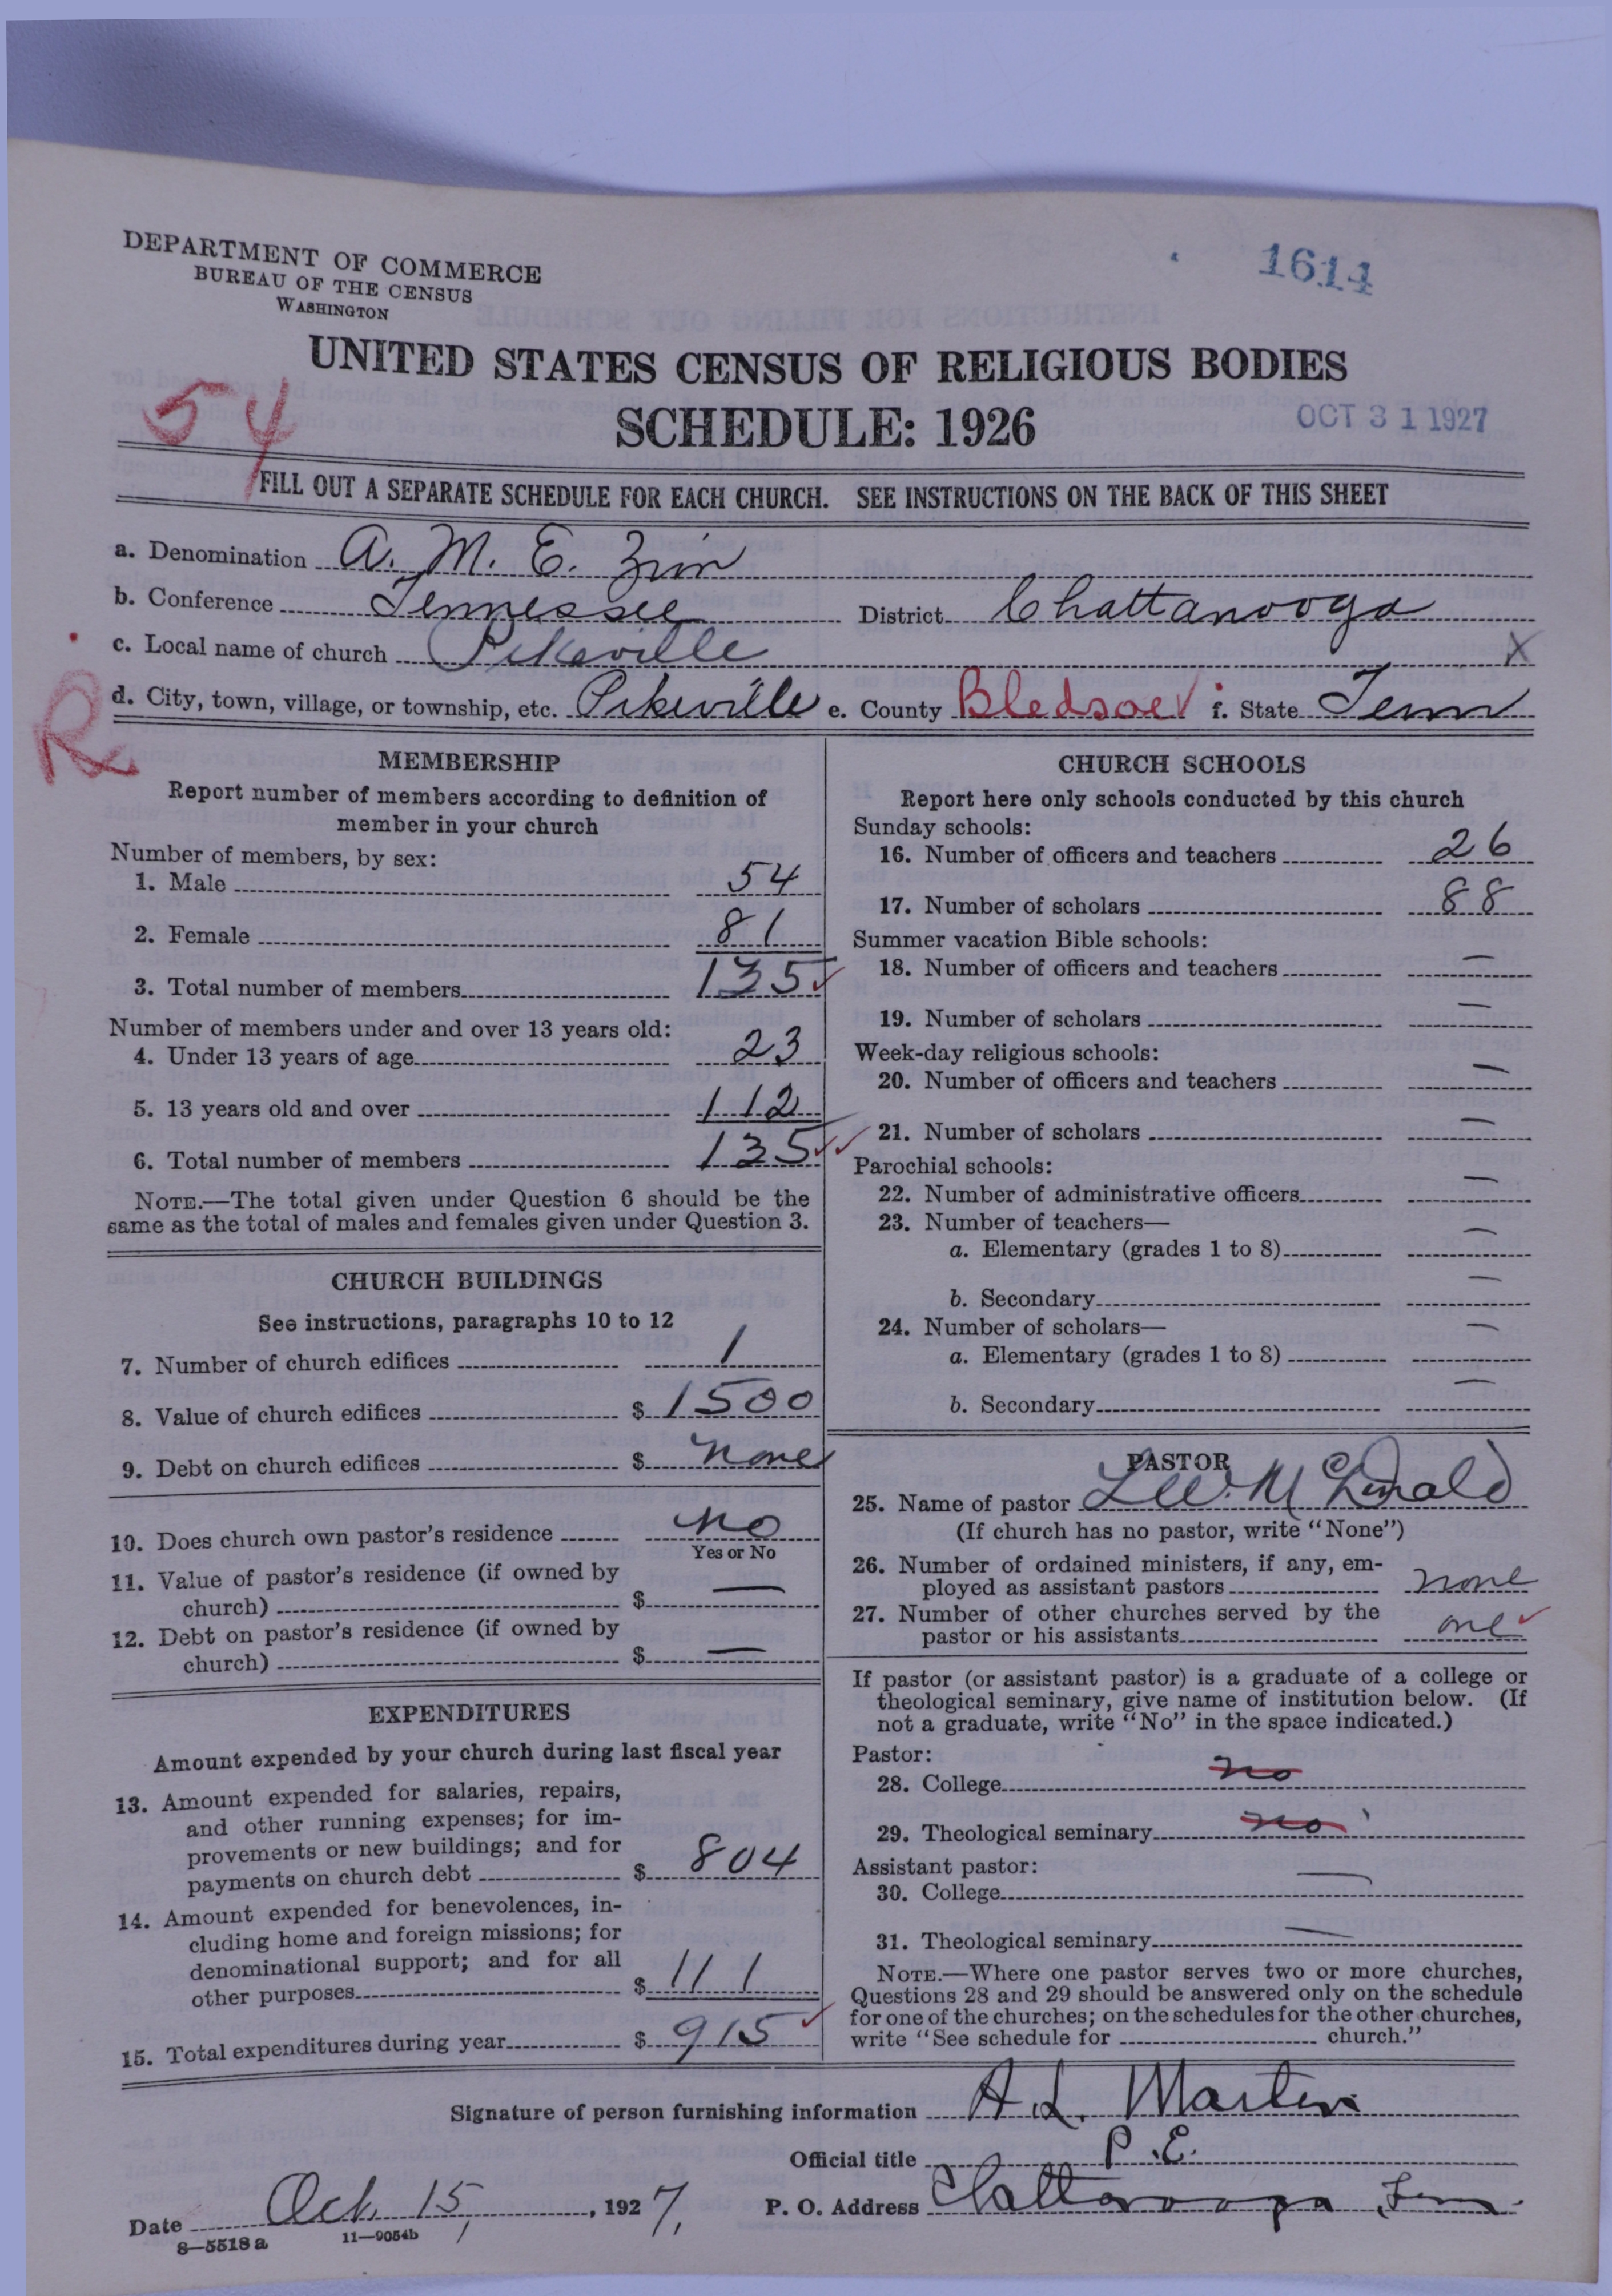 DEPARTMENT OF COMMERCE
BUREAU OF THE CENSUS
WASHINGTON
1614
UNITED STATES CENSUS OF RELIGIOUS BODIES
54
SCHEDULE: 1926
OCT 31 1927
FILL OUT A SEPARATE SCHEDULE FOR EACH CHURCH. SEE INSTRUCTIONS ON THE BACK OF THIS SHEET
a. Denomination A. M. E. Zion
b. Conference Tennessee District Chattanooga
c. Local name of church Pikeville X
R
d. City, town, village, or township, etc. Pikeville e. County Bledsoe f. State Tenn
MEMBERSHIP
Report number of members according to definition of
member in your church
Number of members, by sex:
1. Male 54
2. Female 81
3. Total number of members 135
Number of members under and over 13 years old:
4. Under 13 years of age 23
5. 13 years old and over 112
6. Total number of members 135
NOTE.—The total given under Question 6 should be the
same as the total of males and females given under Question 3.
CHURCH BUILDINGS
See instructions, paragraphs 10 to 12
7. Number of church edifices 1
8. Value of church edifices $ 1500
9. Debt on church edifices $ none
10. Does church own pastor's residence no
Yes or No
11. Value of pastor's residence (if owned by
church) $ —
12. Debt on pastor's residence (if owned by
church) $ —
EXPENDITURES
Amount expended by your church during last fiscal year
13. Amount expended for salaries, repairs,
and other running expenses; for im-
provements or new buildings; and for
payments on church debt $ 804
14. Amount expended for benevolences, in-
cluding home and foreign missions; for
denominational support; and for all
other purposes $ 111
15. Total expenditures during year $ 915
CHURCH SCHOOLS
Report here only schools conducted by this church
Sunday schools:
16. Number of officers and teachers 26
17. Number of scholars 88
Summer vacation Bible schools:
18. Number of officers and teachers —
19. Number of scholars —
Week-day religious schools:
20. Number of officers and teachers —
21. Number of scholars —
Parochial schools:
22. Number of administrative officers —
23. Number of teachers—
a. Elementary (grades 1 to 8) —
b. Secondary —
24. Number of scholars—
a. Elementary (grades 1 to 8) —
b. Secondary —
PASTOR
25. Name of pastor L W. McDonald
(If church has no pastor, write "None")
26. Number of ordained ministers, if any, em-
ployed as assistant pastors none
27. Number of other churches served by the
pastor or his assistants one
If pastor (or assistant pastor) is a graduate of a college or
theological seminary, give name of institution below. (If
not a graduate, write "No" in the space indicated.)
Pastor:
28. College no
29. Theological seminary no
Assistant pastor:
30. College —
31. Theological seminary —
NOTE.—Where one pastor serves two or more churches,
Questions 28 and 29 should be answered only on the schedule
for one of the churches; on the schedules for the other churches,
write "See schedule for church."
Signature of person furnishing information A. L. Martin
Official title P. E.
Date Oct. 15, 1927. P. O. Address Chattanooga Tenn.
8—5518a 11—9054b